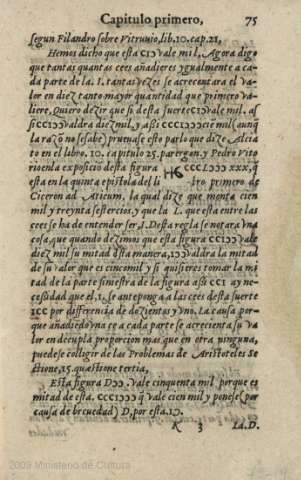 Capitulo primero, 75
segun Filandro sobre Vitruuio, lib. 10. cap. 21,
Hemos dicho que esta CIↃ vale mil, Agora digo
que tantas quantas cees añadieres ygualmente a ca
da parte de la. I. tantas vezes se acrecentara el va
lor en diez tanto mayor quantidad que primero va
liere. Quiero dezir que si desta suerte CIↃ vale mil. as
si CCIↃↃ valdra diez mil, y assi CCCIↃↃↃ cie mil (aunq̃
la razõ no se sabe) prueuase esto por lo que dize Alcia
to en el libro. 10. capitulo 25. parergon. y Pedro Vito
rio en la exposicio desta figura HS CCCLↃↃↃ XXX, q̃
esta en la quinta epistola del li bro primero de
Ciceron ad Aticum, la qual dize que monta cien
mil y treynta sestercios, y que la L. que esta entre las
cees se ha de entender ser .I. Desta regla se notara vna
cosa, que quando dezimos que esta figura CCIↃↃ vale
diez mil su mitad desta manera, IↃↃ valdra la mitad
de su valor que es cinco mil y si quisieres tomar la mi
tad de la parte sinestra de la figura assi CCI ay ne-
cessidad que el, I, se anteponga a las cees desta suerte
ICC por differencia de dozientos y vno. La causa por-
que añadiedo vna ce a cada parte se acrecienta su va
lor en decupla proporcion mas que en otra ninguna,
puedese colligir de las Problemas de Aristoteles se
ctione, 15. quæstione tertia,
Esta figura DↃↃ. Vale cinquenta mil porque es
mitad de esta. CCCIↃↃↃ q̃ vale cien mil y ponese (por
causa de breuedad) D, por esta. IↃ.
K 3 La D.
2009 Ministerio de Cultura